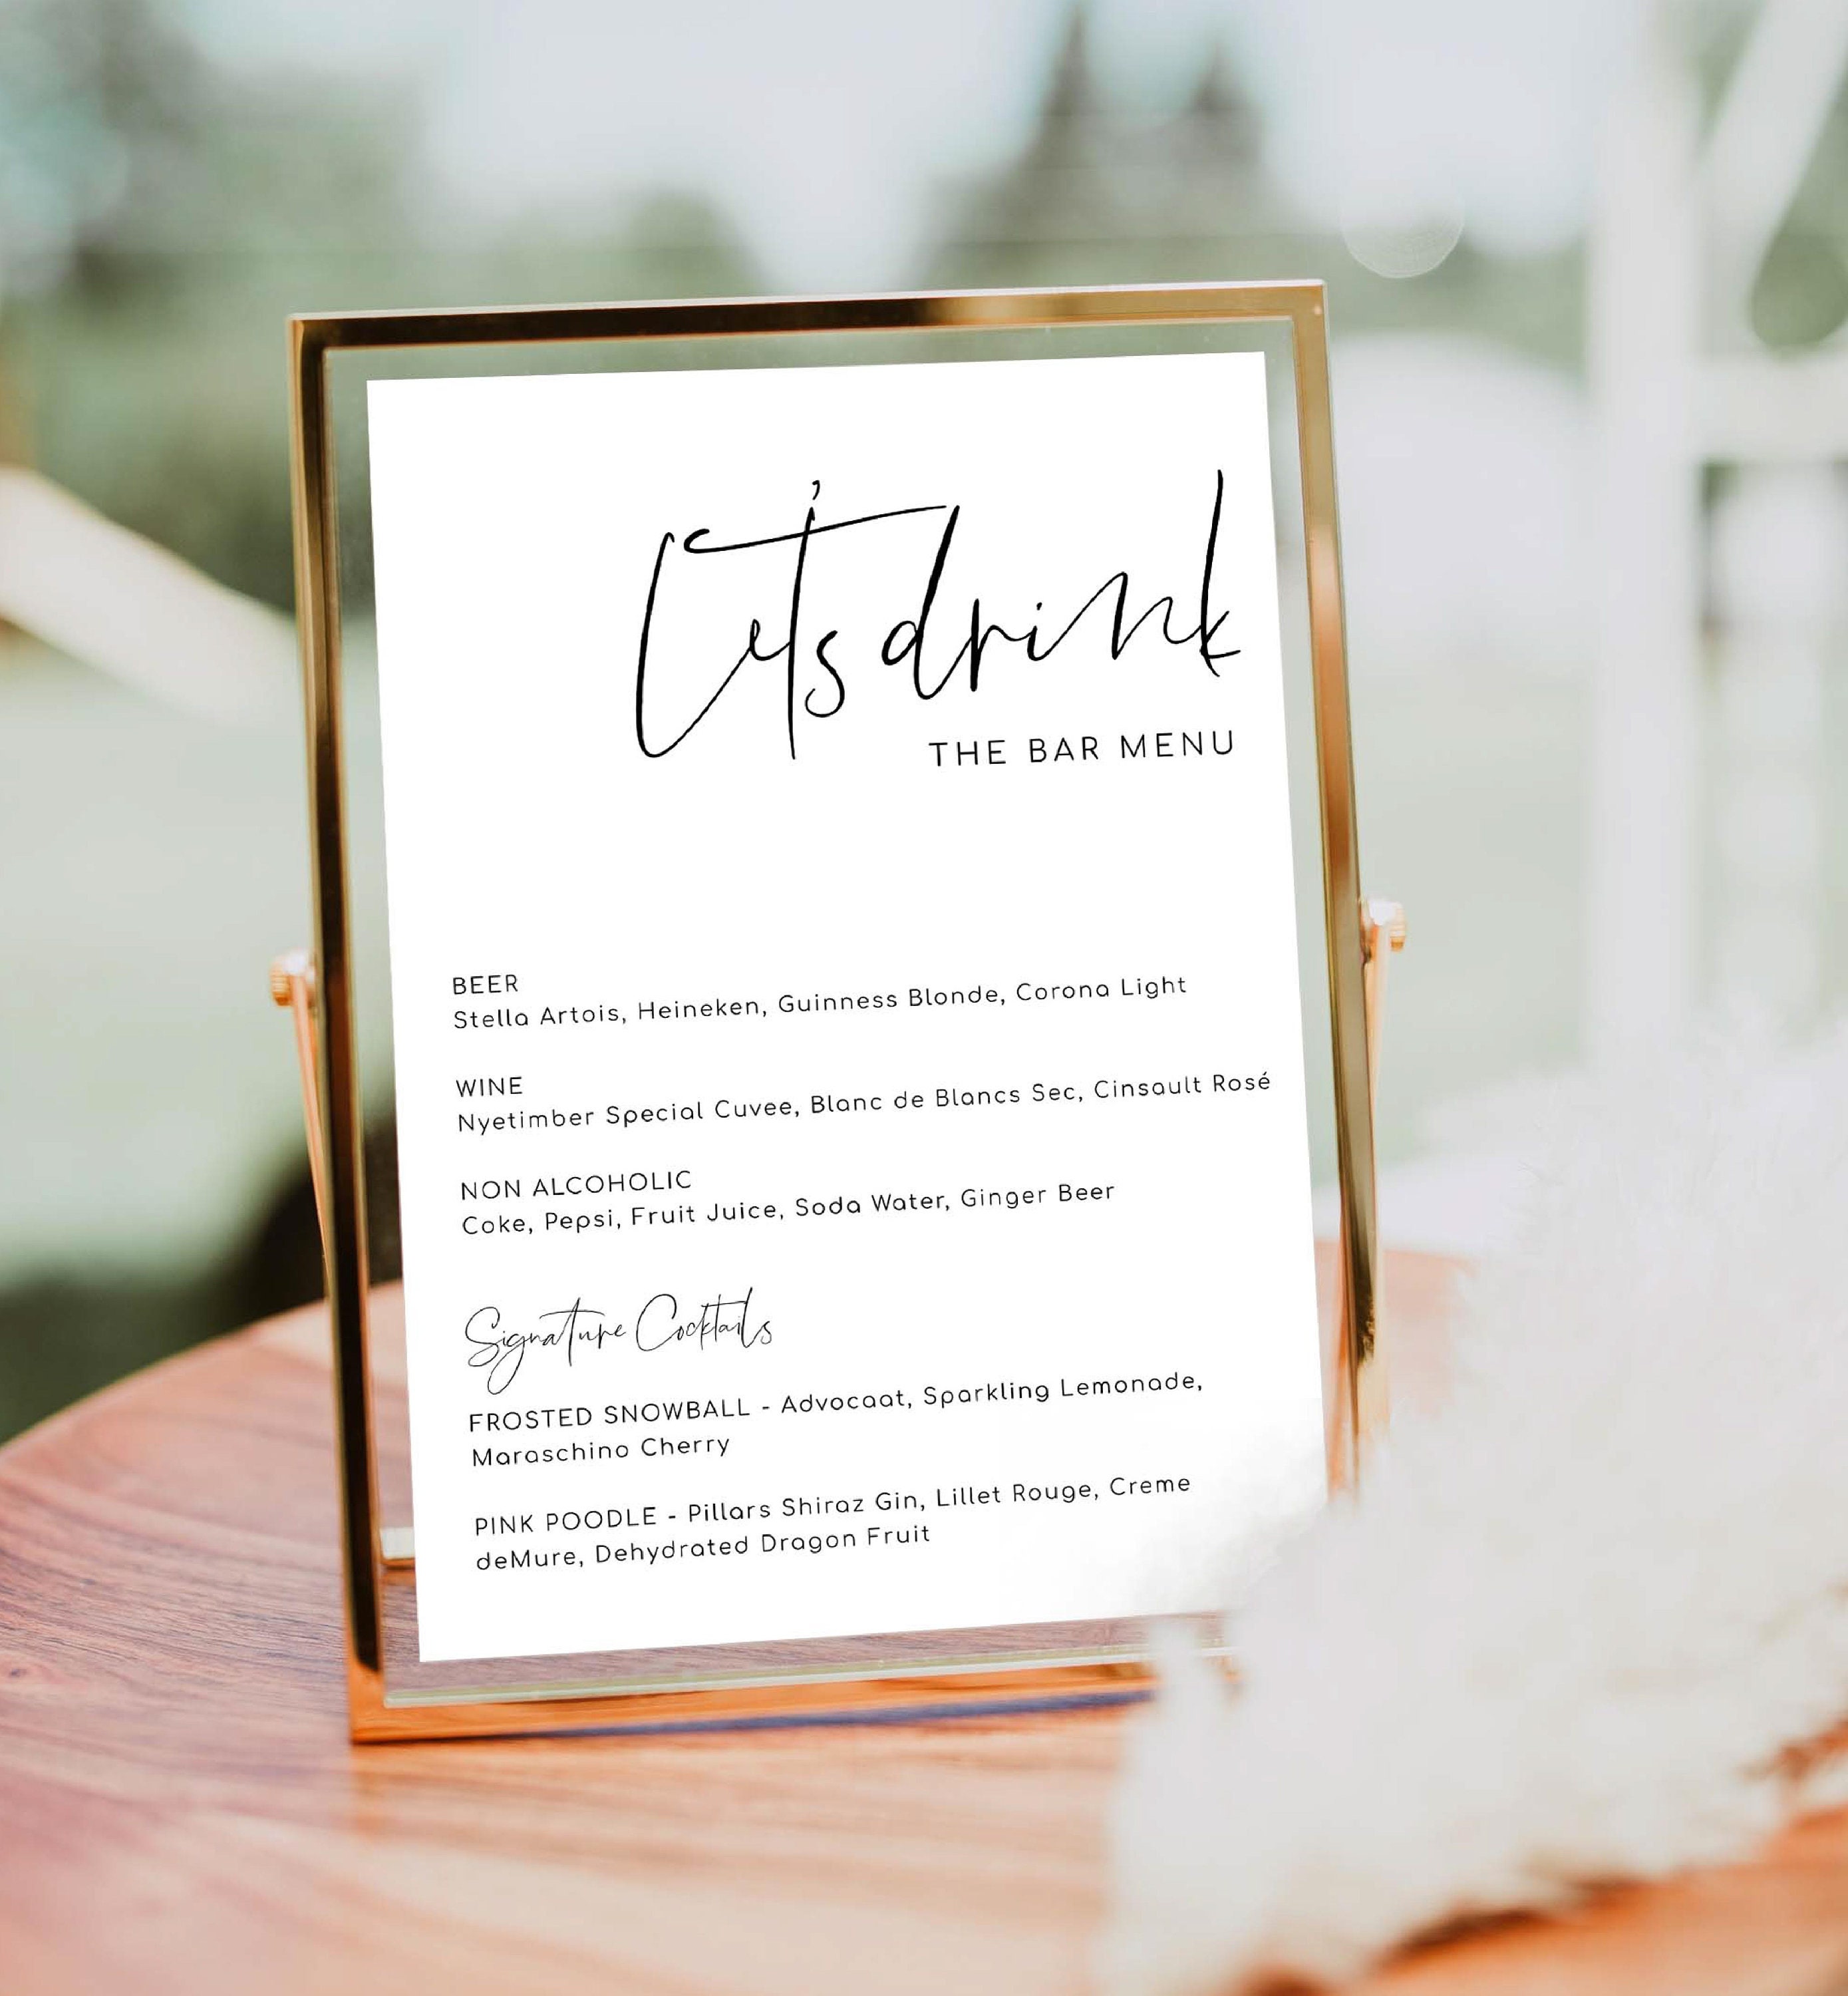 Let's drink
THE BAR MENU
BEER
Stella Artois, Heineken, Guinness Blonde, Corona Light
WINE
Nyetimber Special Cuvee, Blanc de Blancs Sec, Cinsault Rosé
NON ALCOHOLIC
Coke, Pepsi, Fruit Juice, Soda Water, Ginger Beer
Signature Cocktails
FROSTED SNOWBALL - Advocaat, Sparkling Lemonade,
Maraschino Cherry
PINK POODLE - Pillars Shiraz Gin, Lillet Rouge, Creme
deMure, Dehydrated Dragon Fruit